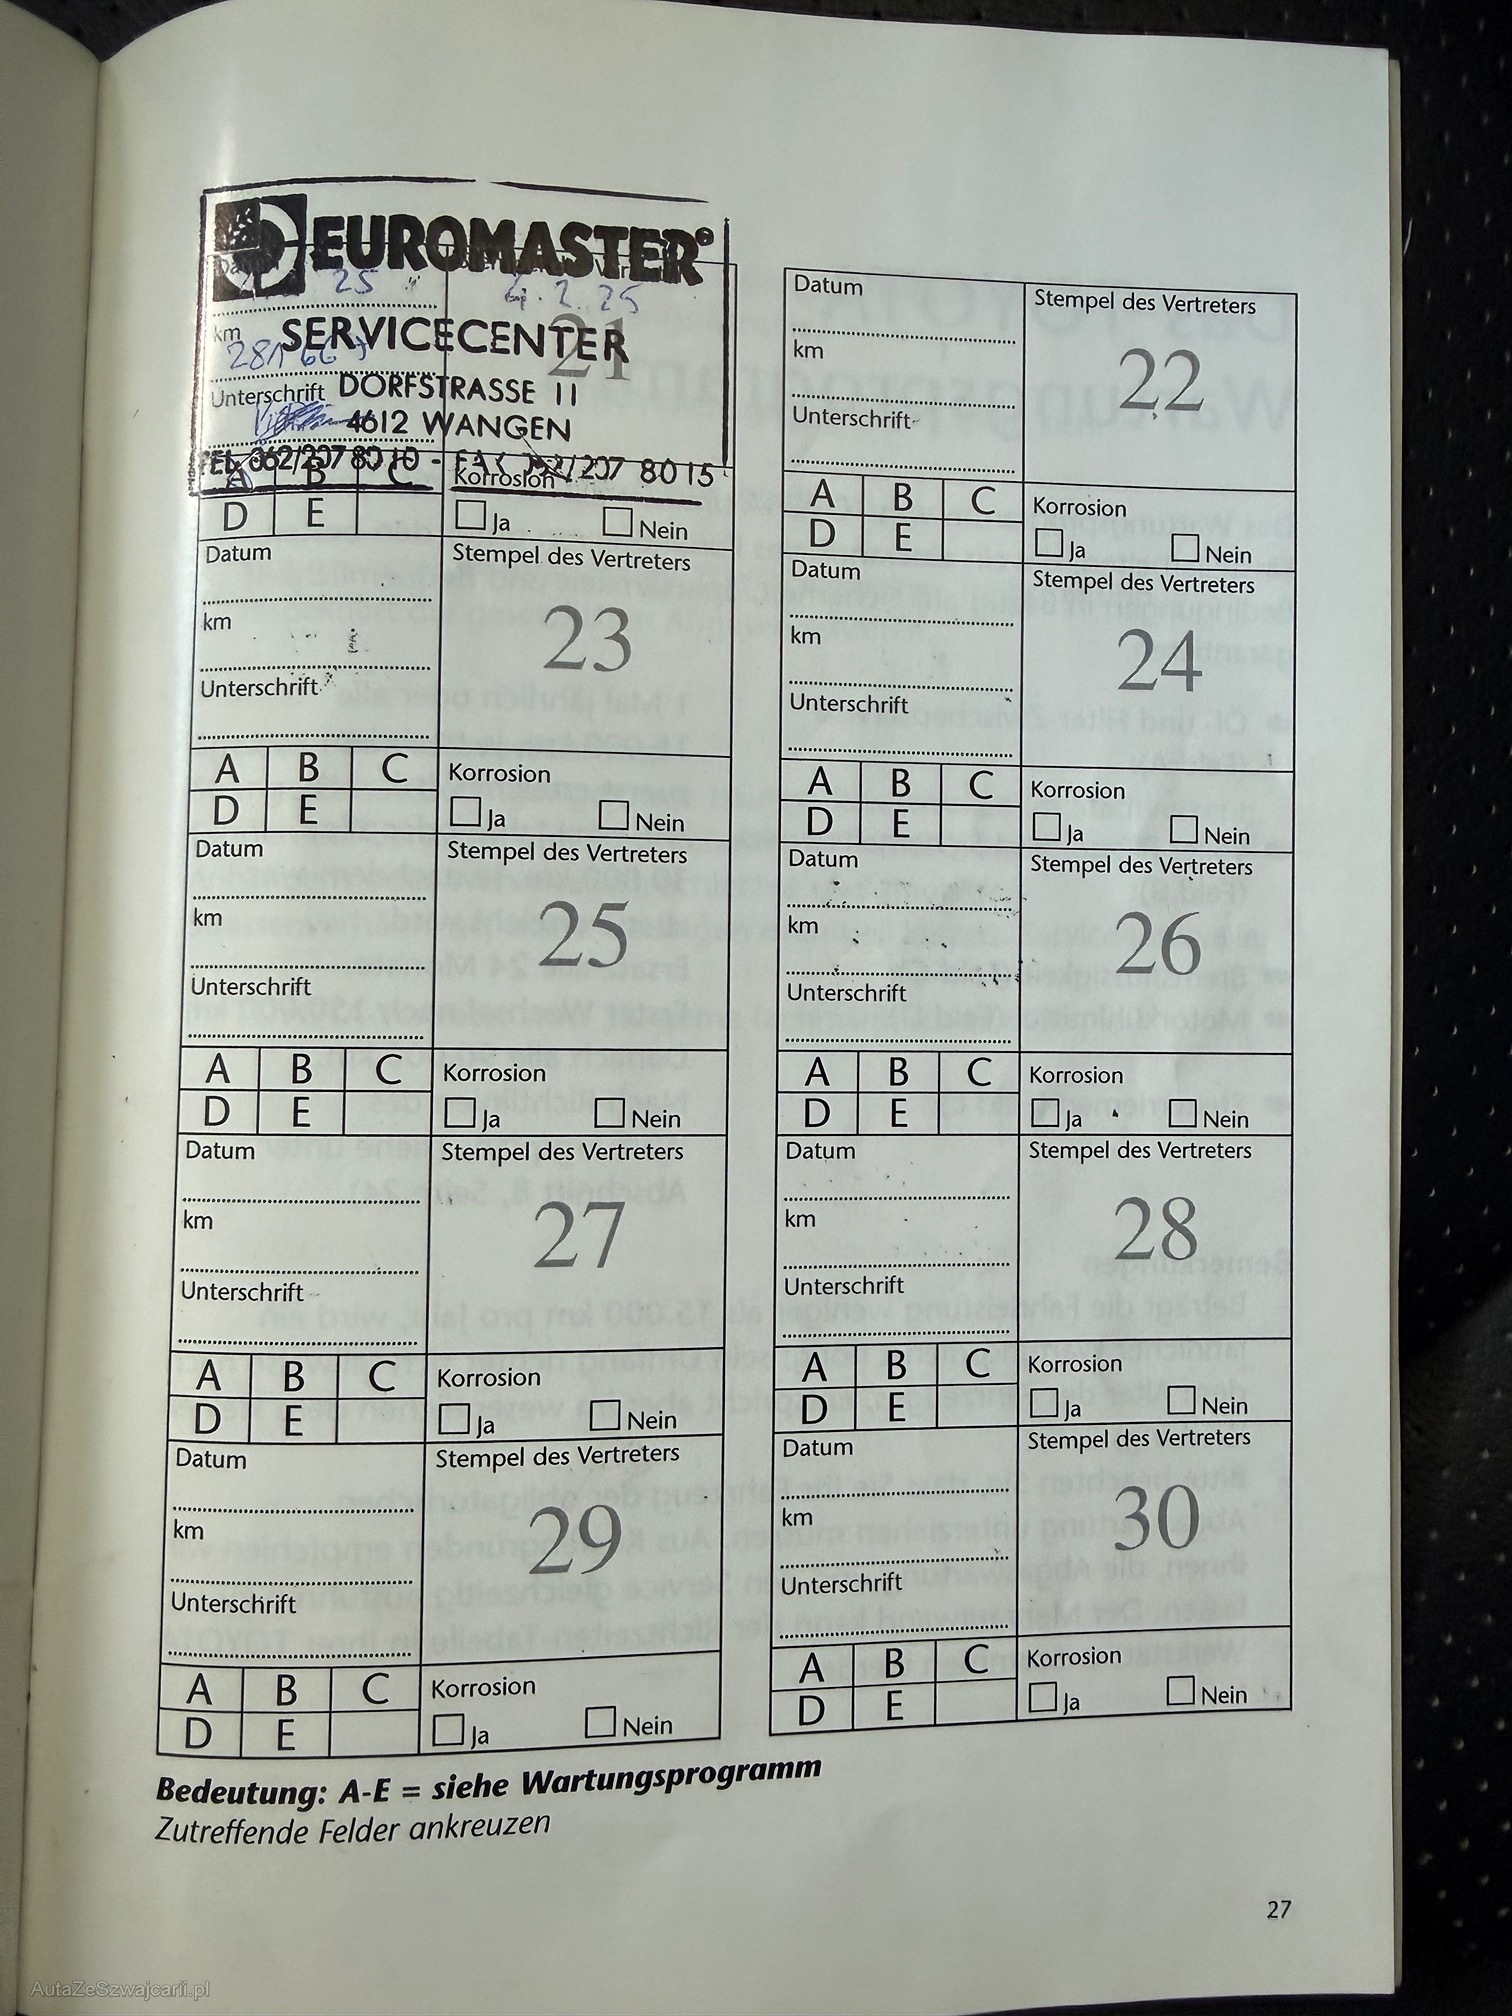 EUROMASTER®
25
4.2.25
km
SERVICECENTER
21
Unterschrift
DORFSTRASSE 11
4612 WANGEN
TEL 062/207 80 10 - FAX 062/207 80 15
A B C
Korrosion
D E
Ja Nein
Datum
Stempel des Vertreters
km
22
Unterschrift
A B C
Korrosion
D E
Ja Nein
Datum
Stempel des Vertreters
km
23
Unterschrift
A B C
Korrosion
D E
Ja Nein
Datum
Stempel des Vertreters
km
24
Unterschrift
A B C
Korrosion
D E
Ja Nein
Datum
Stempel des Vertreters
km
25
Unterschrift
A B C
Korrosion
D E
Ja Nein
Datum
Stempel des Vertreters
km
26
Unterschrift
A B C
Korrosion
D E
Ja Nein
Datum
Stempel des Vertreters
km
27
Unterschrift
A B C
Korrosion
D E
Ja Nein
Datum
Stempel des Vertreters
km
28
Unterschrift
A B C
Korrosion
D E
Ja Nein
Datum
Stempel des Vertreters
km
29
Unterschrift
A B C
Korrosion
D E
Ja Nein
Datum
Stempel des Vertreters
km
30
Unterschrift
A B C
Korrosion
D E
Ja Nein
Bedeutung: A-E = siehe Wartungsprogramm
Zutreffende Felder ankreuzen
27
AutaZeSzwajcarii.pl